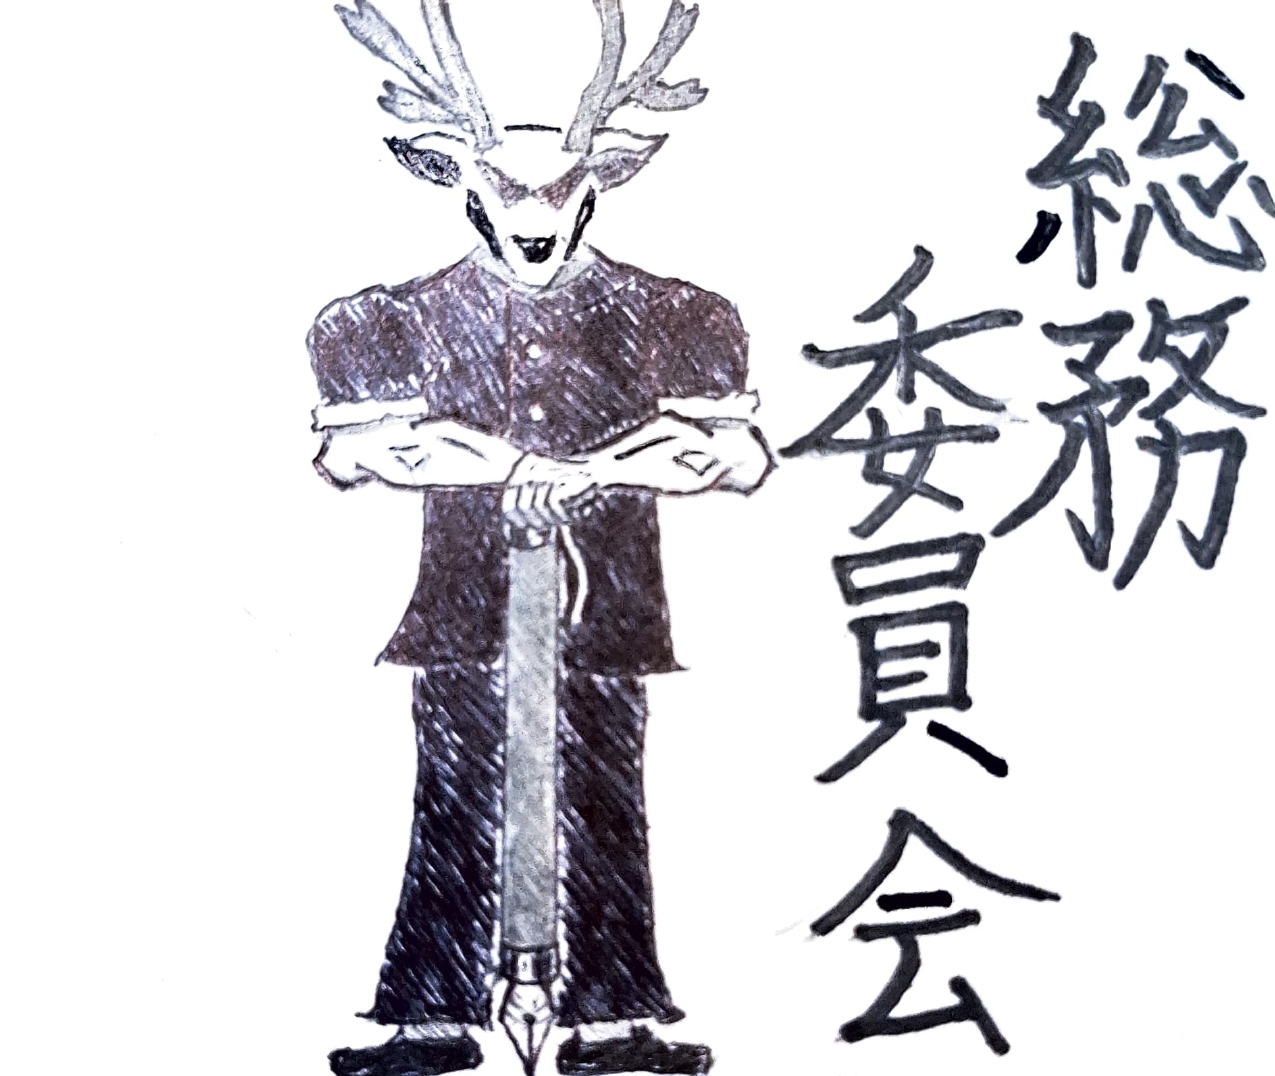 総務
委員会